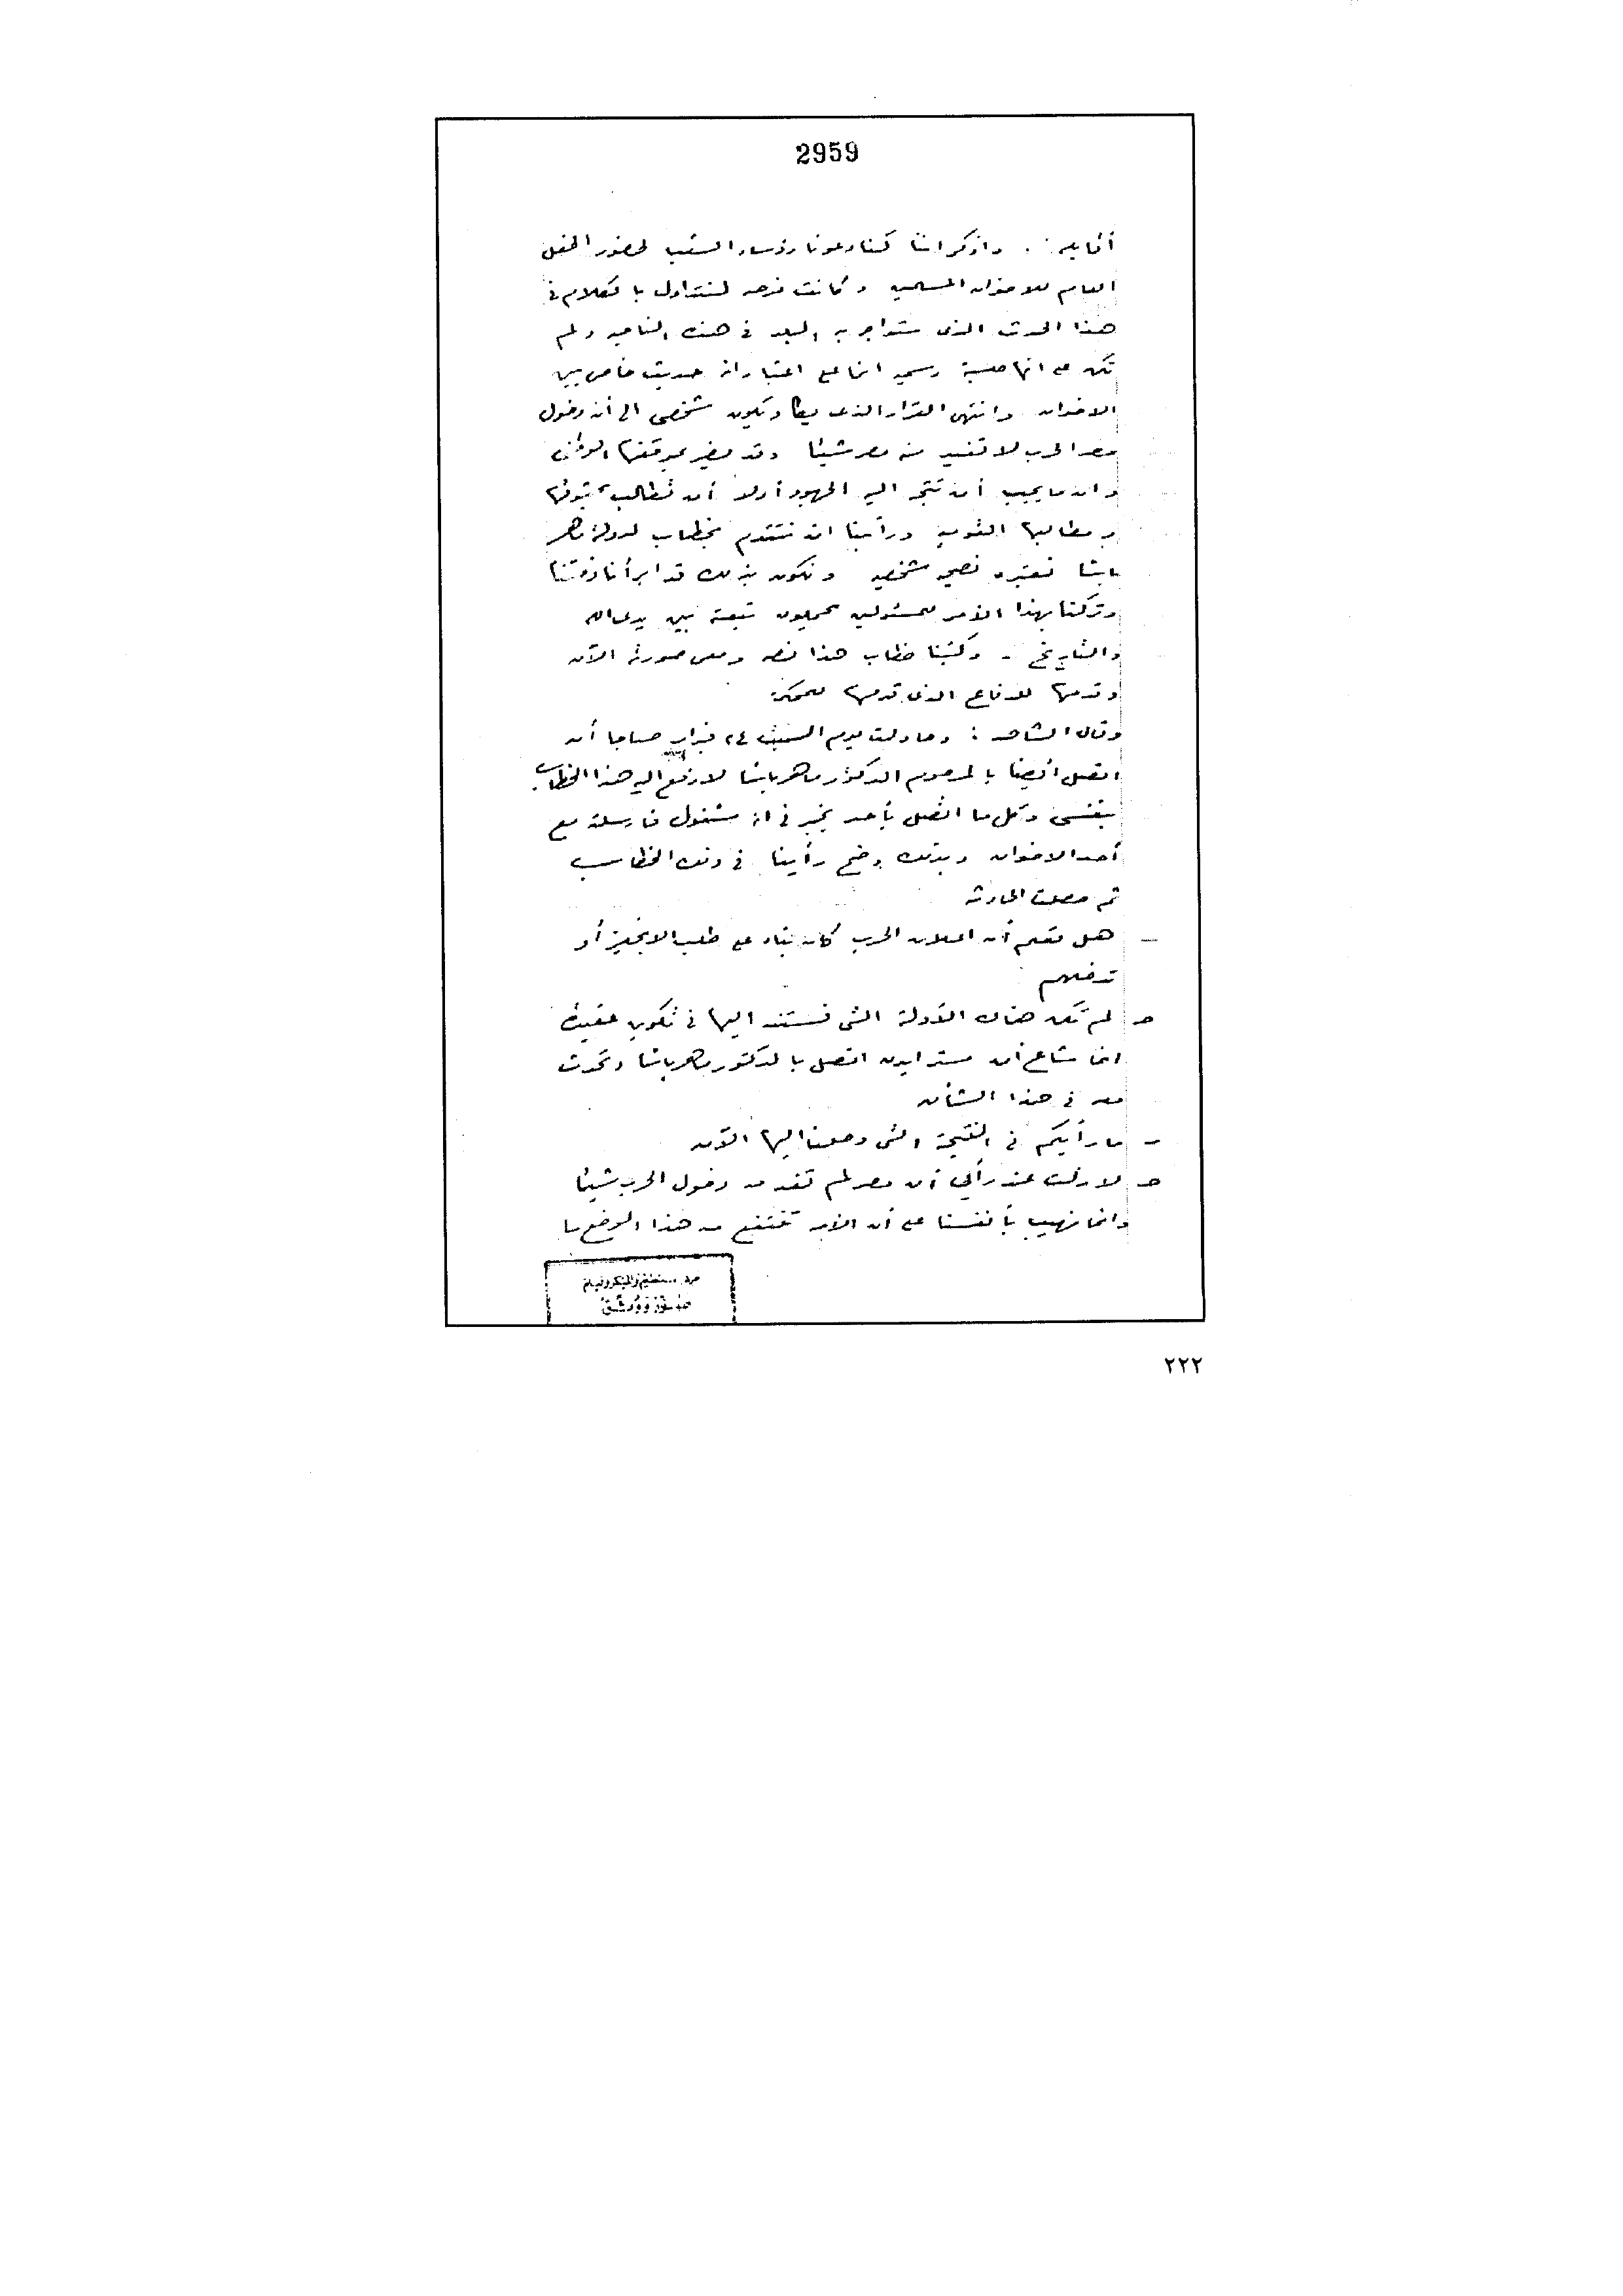 2959
أقابله . واذكر اننا كنا دعونا رؤساء الشعب لحضور الحفل
العام للاخوان المسلمين وكانت فرصه لنتداول بالكلام فى
هذا الحدث الذى ستواجه به البلد فى هذه الناحيه ولم
تكن على انها جلسة رسميه انما على اعتبار انه حديث خاص بين
الاخوان وانتهى القرار الذى يكاد يكون شخصى الى أن دخول
مصر الحرب لا تفيد منه مصر شيئا وقد يضير بموقفها
وان ما يجب أن تتجه اليه الجهود أولا أن تطالب بحقوقها
ومطالبها القوميه ورأينا ان نتقدم بخطاب لدولة ماهر
باشا نعتبره نصحيه شخصيه ونكون بذلك قد ابرأنا ذمتنا
وتركنا بهذا الأمر للمسئولين يحملون تبعته بين يدى الله
والتاريخ - وكتبنا خطاب هذا نصه ومعى صورته الآن
وقدمها للدفاع الذى قدمها للمحكمة
وقال الشاهد : وحاولت يوم السبت ٢٤ فبراير صباحا أن
اتصل أيضا بالمرحوم الدكتور ماهر باشا لارفع اليه هذا الخطاب
بنفسى وكل ما اتصل بأحد يخبرنى انه مشغول فارسلته مع
أحد الاخوان وبذلك وضح رأينا فى ذلك الخطاب
ثم حصلت الحادثه
- هل تعلم أن اعلان الحرب كان بناء على طلب الانجليز أو
تدخلهم
ج لم تكن هناك الأدلة التى نستند اليها فى تكوين عقيدة
انما شاع أن مستر ايدن اتصل بالدكتور ماهر باشا وتحدث
معه فى هذا الشأن
- ما رأيكم فى النتيجة التى وصلنا اليها الآن
ج لا زلت عند رأيى أن مصر لم تفد من دخول الحرب شيئا
وانما نهيب بأنفسنا على أن الأمه تنتفع من هذا الوضع ما
٢٢٢